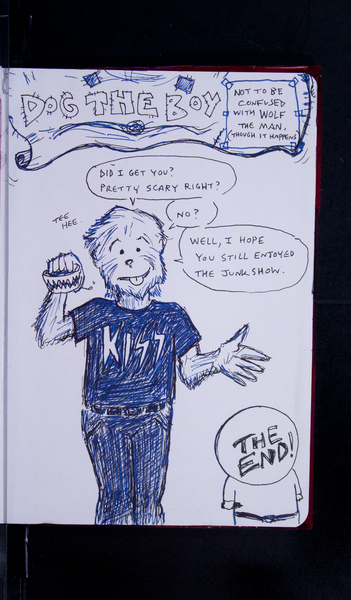 DOG THE BOY
NOT TO BE
CONFUSED
WITH WOLF
THE MAN,
(THOUGH IT HAPPENS)
DID I GET YOU?
PRETTY SCARY RIGHT?
NO?
TEE
HEE.
WELL, I HOPE
YOU STILL ENJOYED
THE JUNKSHOW.
KISS
THE
END!